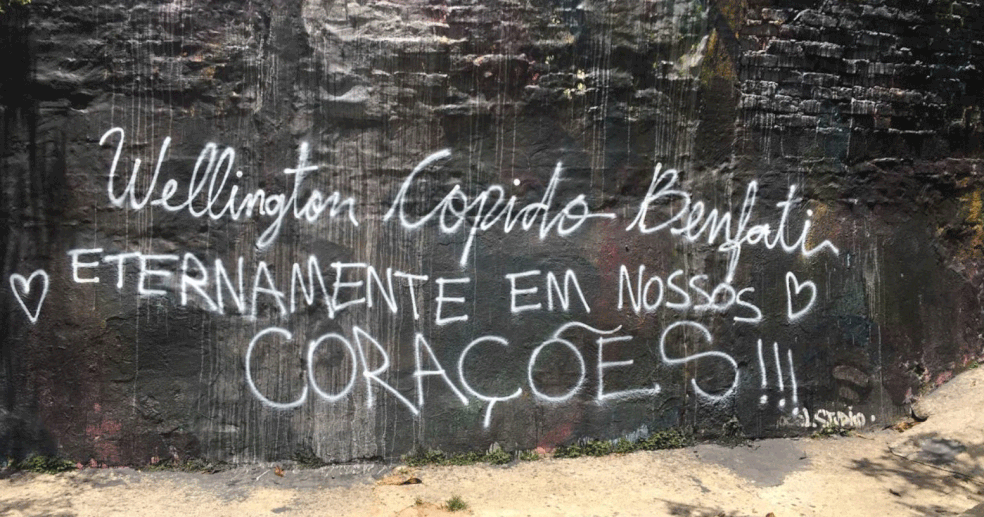 Wellington Copido Benfati
ETERNAMENTE EM NOSSOS
CORAÇÕES!!!
STUDIO.